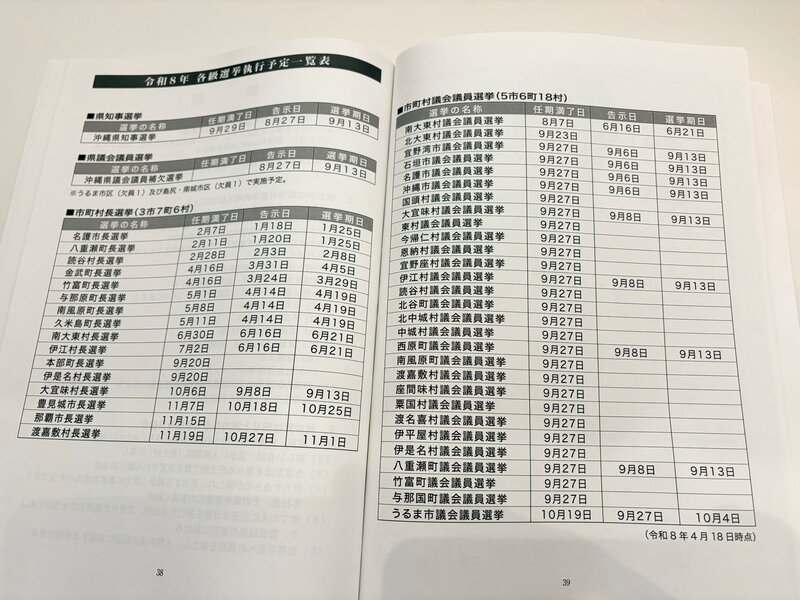 令和8年 各級選挙執行予定一覧表
■県知事選挙
選挙の名称 任期満了日 告示日 選挙期日
沖縄県知事選挙 9月29日 8月27日 9月13日
■県議会議員選挙
選挙の名称 任期満了日 告示日 選挙期日
沖縄県議会議員補欠選挙 8月27日 9月13日
※うるま市区(欠員1)及び島尻・南城市区(欠員1)で実施予定。
■市町村長選挙(3市7町6村)
選挙の名称 任期満了日 告示日 選挙期日
名護市長選挙 2月7日 1月18日 1月25日
八重瀬町長選挙 2月11日 1月20日 1月25日
読谷村長選挙 2月28日 2月3日 2月8日
金武町長選挙 4月16日 3月31日 4月5日
竹富町長選挙 4月16日 3月24日 3月29日
与那原町長選挙 5月1日 4月14日 4月19日
南風原町長選挙 5月8日 4月14日 4月19日
久米島町長選挙 5月11日 4月14日 4月19日
南大東村長選挙 6月30日 6月16日 6月21日
伊江村長選挙 7月2日 6月16日 6月21日
本部町長選挙 9月20日
伊是名村長選挙 9月20日
大宜味村長選挙 10月6日 9月8日 9月13日
豊見城市長選挙 11月7日 10月18日 10月25日
那覇市長選挙 11月15日
渡嘉敷村長選挙 11月19日 10月27日 11月1日
38
■市町村議会議員選挙(5市6町18村)
選挙の名称 任期満了日 告示日 選挙期日
南大東村議会議員選挙 8月7日 6月16日 6月21日
北大東村議会議員選挙 9月23日
宜野湾市議会議員選挙 9月27日 9月6日 9月13日
石垣市議会議員選挙 9月27日 9月6日 9月13日
名護市議会議員選挙 9月27日 9月6日 9月13日
沖縄市議会議員選挙 9月27日 9月6日 9月13日
国頭村議会議員選挙 9月27日
大宜味村議会議員選挙 9月27日 9月8日 9月13日
東村議会議員選挙 9月27日
今帰仁村議会議員選挙 9月27日
恩納村議会議員選挙 9月27日
宜野座村議会議員選挙 9月27日
伊江村議会議員選挙 9月27日 9月8日 9月13日
読谷村議会議員選挙 9月27日
北谷町議会議員選挙 9月27日
北中城村議会議員選挙 9月27日
中城村議会議員選挙 9月27日
西原町議会議員選挙 9月27日 9月8日 9月13日
南風原町議会議員選挙 9月27日
渡嘉敷村議会議員選挙 9月27日
座間味村議会議員選挙 9月27日
粟国村議会議員選挙 9月27日
渡名喜村議会議員選挙 9月27日
伊平屋村議会議員選挙 9月27日
伊是名村議会議員選挙 9月27日
八重瀬町議会議員選挙 9月27日 9月8日 9月13日
竹富町議会議員選挙 9月27日
与那国町議会議員選挙 9月27日
うるま市議会議員選挙 10月19日 9月27日 10月4日
(令和8年4月18日時点)
39